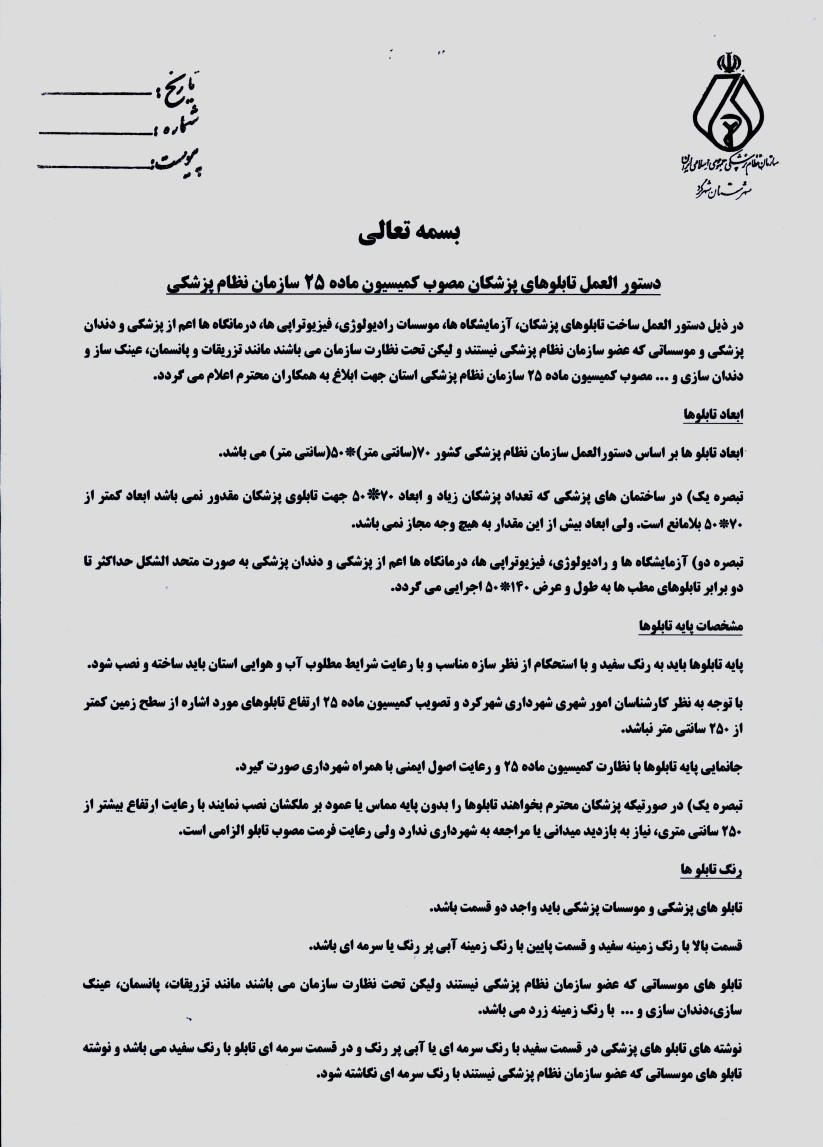 تاریخ:
شماره:
پیوست:
سازمان نظام پزشکی جمهوری اسلامی ایران
شهرستان شهرکرد
بسمه تعالی
دستور العمل تابلوهای پزشکان مصوب کمیسیون ماده ۲۵ سازمان نظام پزشکی
در ذیل دستور العمل ساخت تابلوهای پزشکان، آزمایشگاه ها، موسسات رادیولوژی، فیزیوتراپی ها، درمانگاه ها اعم از پزشکی و دندان
پزشکی و موسساتی که عضو سازمان نظام پزشکی نیستند و لیکن تحت نظارت سازمان می باشند مانند تزریقات و پانسمان، عینک ساز و
دندان سازی و ... مصوب کمیسیون ماده ۲۵ سازمان نظام پزشکی استان جهت ابلاغ به همکاران محترم اعلام می گردد.
ابعاد تابلوها
ابعاد تابلو ها بر اساس دستورالعمل سازمان نظام پزشکی کشور ۷۰(سانتی متر)*۵۰(سانتی متر) می باشد.
تبصره یک) در ساختمان های پزشکی که تعداد پزشکان زیاد و ابعاد ۷۰*۵۰ جهت تابلوی پزشکان مقدور نمی باشد ابعاد کمتر از
۷۰*۵۰ بلامانع است. ولی ابعاد بیش از این مقدار به هیچ وجه مجاز نمی باشد.
تبصره دو) آزمایشگاه ها و رادیولوژی، فیزیوتراپی ها، درمانگاه ها اعم از پزشکی و دندان پزشکی به صورت متحد الشکل حداکثر تا
دو برابر تابلوهای مطب ها به طول و عرض ۱۴۰*۵۰ اجرایی می گردد.
مشخصات پایه تابلوها
پایه تابلوها باید به رنگ سفید و با استحکام از نظر سازه مناسب و با رعایت شرایط مطلوب آب و هوایی استان باید ساخته و نصب شود.
با توجه به نظر کارشناسان امور شهری شهرداری شهرکرد و تصویب کمیسیون ماده ۲۵ ارتفاع تابلوهای مورد اشاره از سطح زمین کمتر
از ۲۵۰ سانتی متر نباشد.
جانمایی پایه تابلوها با نظارت کمیسیون ماده ۲۵ و رعایت اصول ایمنی با همراه شهرداری صورت گیرد.
تبصره یک) در صورتیکه پزشکان محترم بخواهند تابلوها را بدون پایه مماس یا عمود بر ملکشان نصب نمایند با رعایت ارتفاع بیشتر از
۲۵۰ سانتی متری، نیاز به بازدید میدانی یا مراجعه به شهرداری ندارد ولی رعایت فرمت مصوب تابلو الزامی است.
رنگ تابلو ها
تابلو های پزشکی و موسسات پزشکی باید واجد دو قسمت باشد.
قسمت بالا با رنگ زمینه سفید و قسمت پایین با رنگ زمینه آبی پر رنگ یا سرمه ای باشد.
تابلو های موسساتی که عضو سازمان نظام پزشکی نیستند ولیکن تحت نظارت سازمان می باشند مانند تزریقات، پانسمان، عینک
سازی،دندان سازی و ... با رنگ زمینه زرد می باشد.
نوشته های تابلو های پزشکی در قسمت سفید با رنگ سرمه ای یا آبی پر رنگ و در قسمت سرمه ای تابلو با رنگ سفید می باشد و نوشته
تابلو های موسساتی که عضو سازمان نظام پزشکی نیستند با رنگ سرمه ای نگاشته شود.